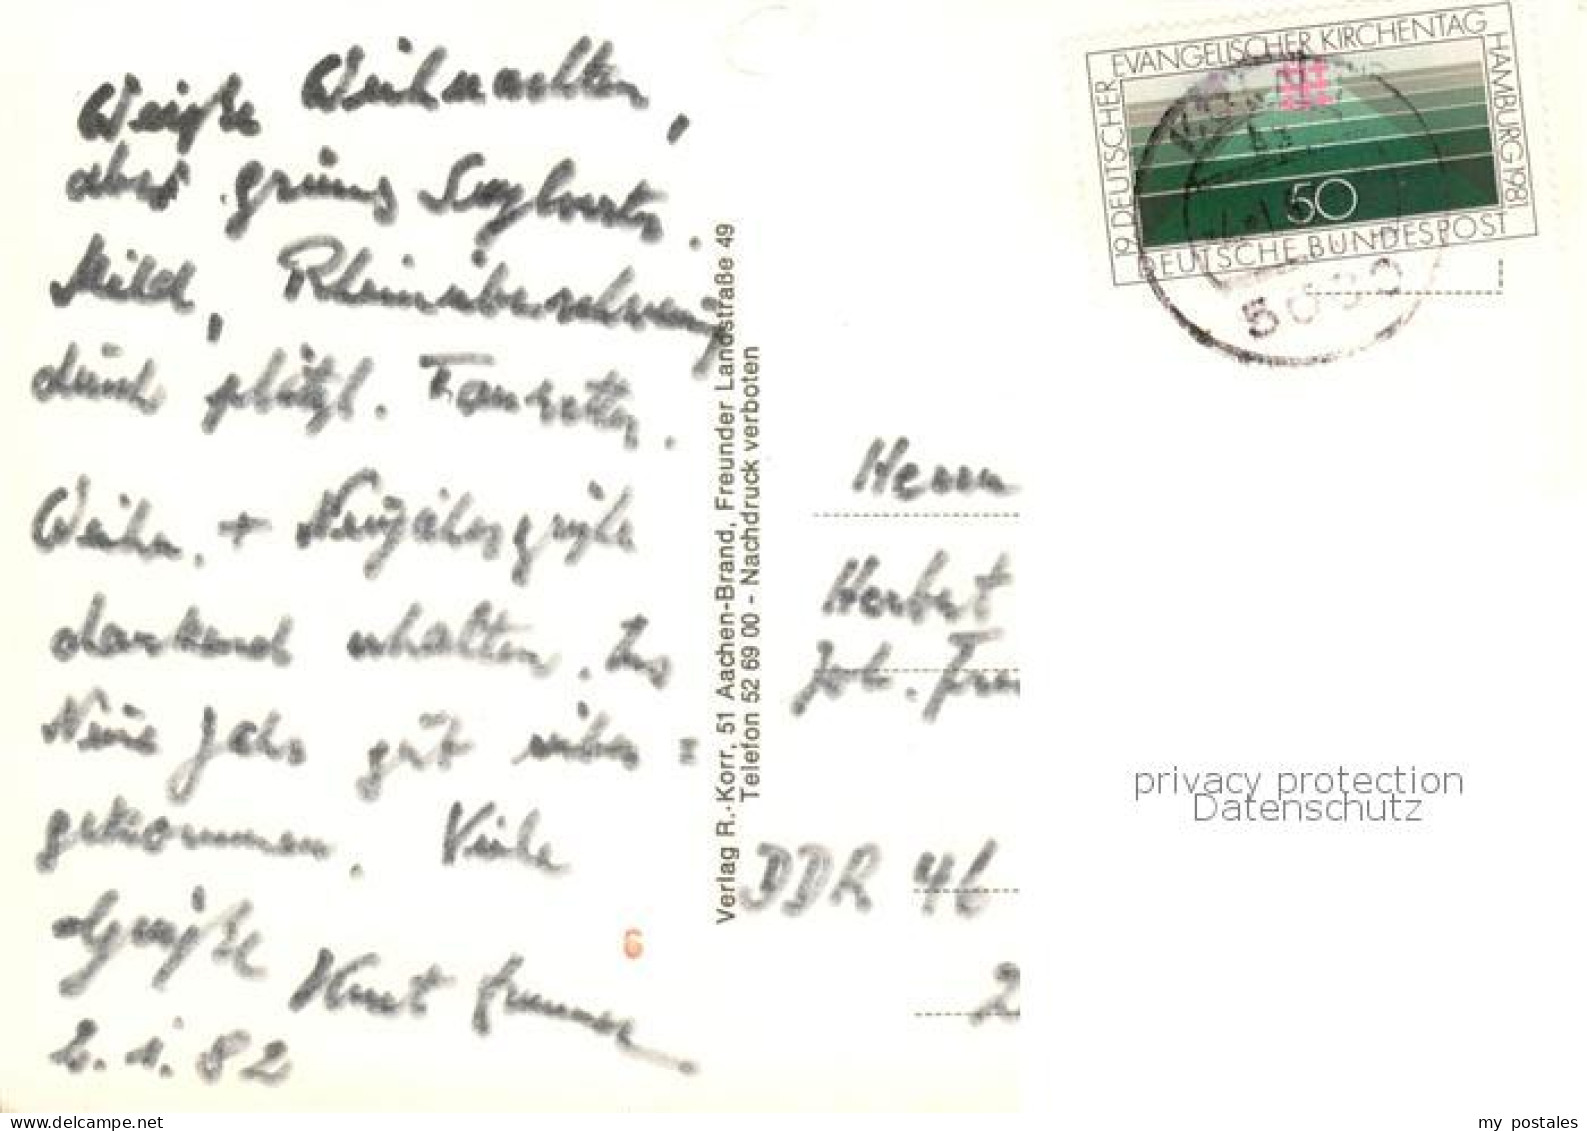 Weiße Weihnachten,
aber grünes Sylvester.
Mild, Rheinüberschwemg
durch plötzl. Tauwetter.
Weihn. + Neujahrsgrüße
dankend erhalten. Ins
Neue Jahr gut rüber =
gekommen. Viele
Grüße Kurt
2.1.82
6
Verlag R. Korr, 51 Aachen-Brand, Freunder Landstraße 49
Telefon 52 69 00 - Nachdruck verboten
19. DEUTSCHER EVANGELISCHER KIRCHENTAG HAMBURG 1981
50
DEUTSCHE BUNDESPOST
Herrn
Herbert
Joh.
DDR 46
2
privacy protection
Datenschutz
my postales